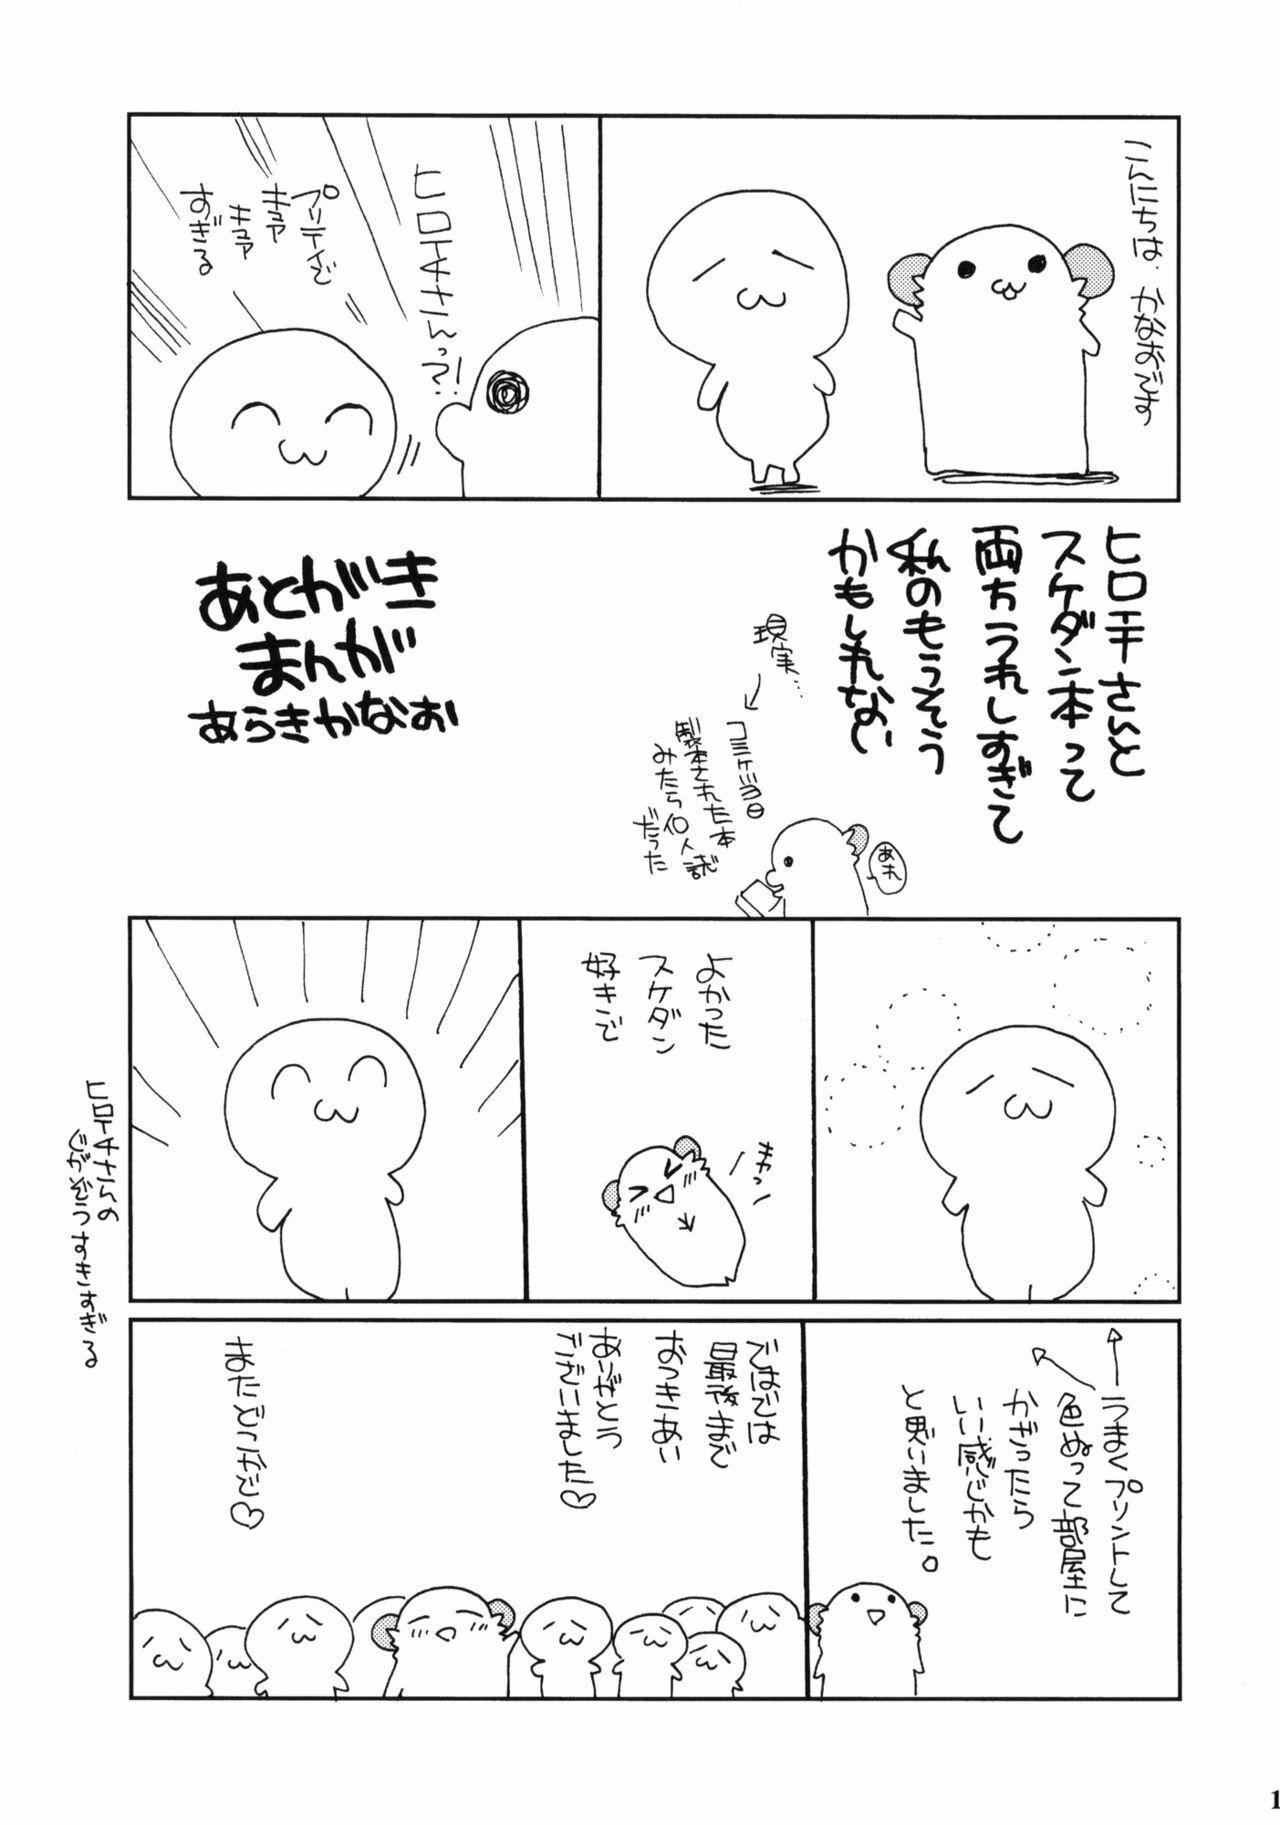 こんにちは、かなおです
ヒロエチさんっ?!
プリティで
キュア
キュア
すぎる
ヒロエチさんと
スケダン本って
両方うれしすぎて
私のもうそう
かもしれない
あれ
現実…
コミケ当日
製本された本
みたら個人誌
だった
あとがき
まんが
あらきかなお
よかった
スケダン
好きで
キャっ
ヒロエチさんの
じがぞうすきすぎる
うまくプリントして
色ぬって部屋に
かざったら
いい感じかも
と思いました。
ではでは
最後まで
おつきあい
ありがとう
ございました♡
またどこかで♡
1